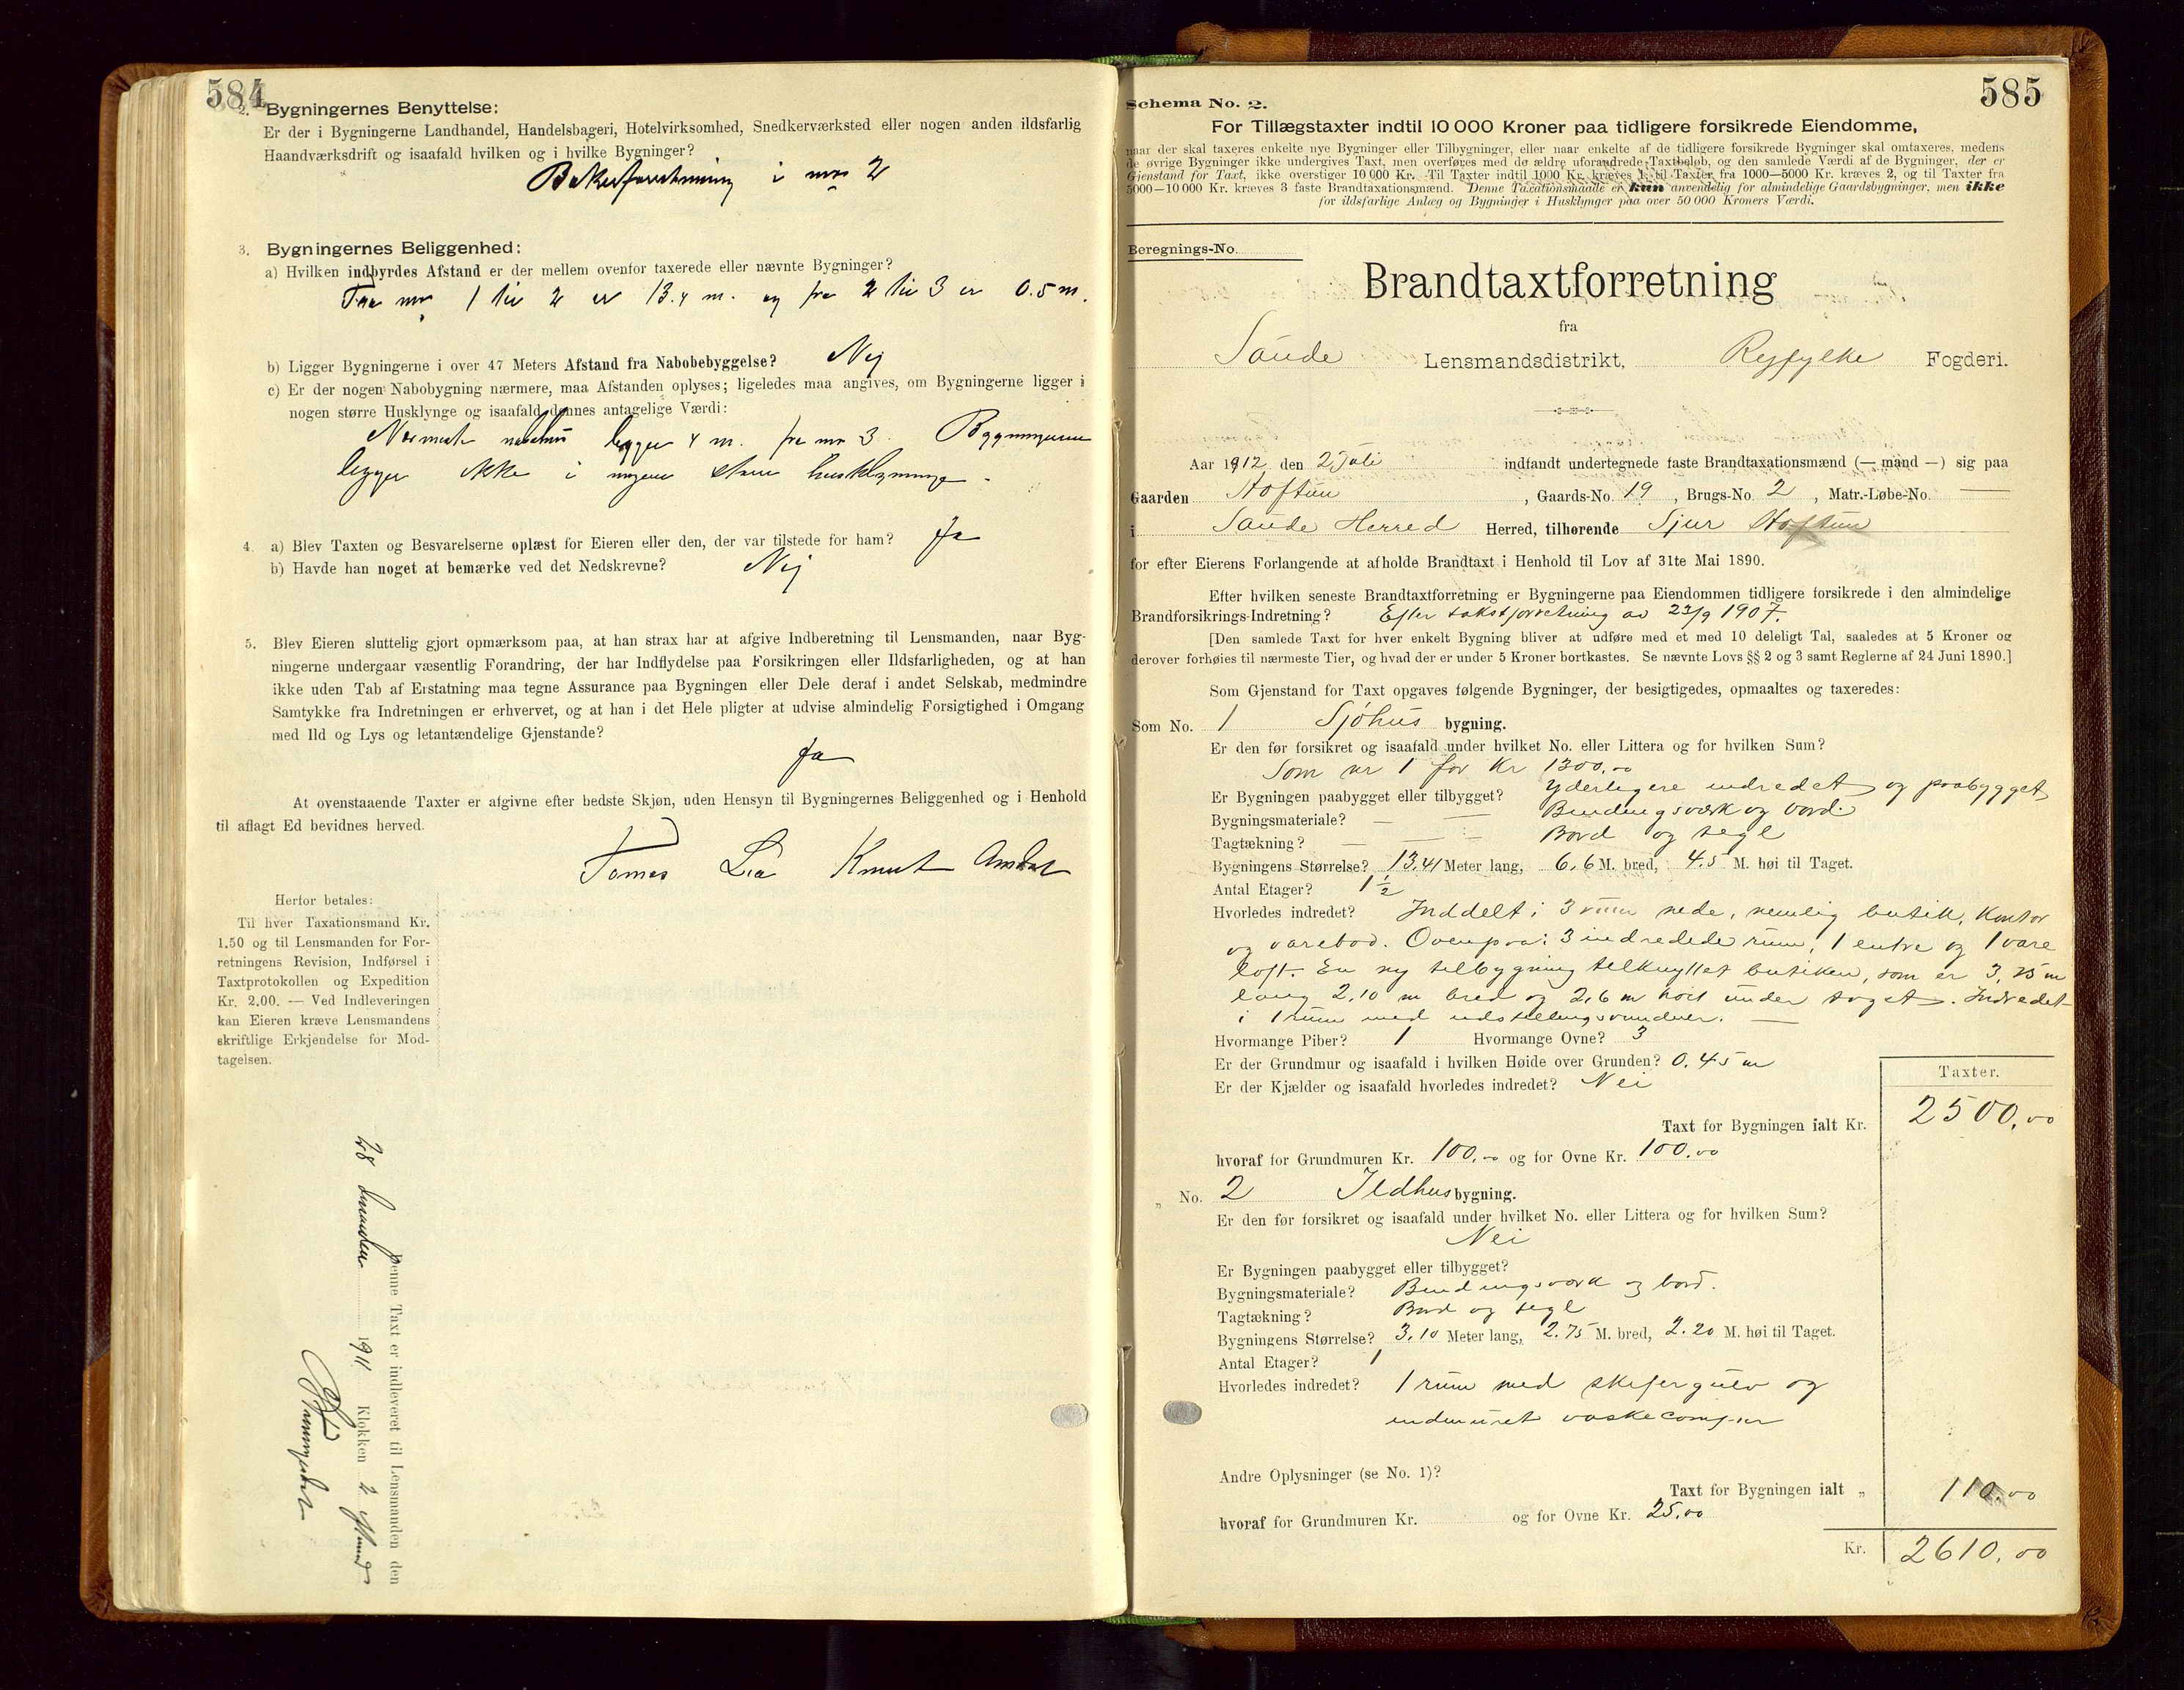 584
2. Bygningernes Benyttelse:
Er der i Bygningerne Landhandel, Handelsbageri, Hotelvirksomhed, Snedkerværksted eller nogen anden ildsfarlig
Haandværksdrift og isaafald hvilken og i hvilke Bygninger?
Bakerforretning i nro 2
3. Bygningernes Beliggenhed:
a) Hvilken indbyrdes Afstand er der mellem ovenfor taxerede eller nævnte Bygninger?
Fra nro 1 til 2 er 13.4 m. og fra 2 til 3 er 0.5 m.
b) Ligger Bygningerne i over 47 Meters Afstand fra Nabobebyggelse? Nej
c) Er der nogen Nabobygning nærmere, maa Afstanden oplyses; ligeledes maa angives, om Bygningerne ligger i
nogen større Husklynge og isaafald dennes antagelige Værdi:
Nærmeste nabohus ligger 4 m. fra nro 3. Bygningerne
ligger ikke i nogen større husklynge.
4. a) Blev Taxten og Besvarelserne oplæst for Eieren eller den, der var tilstede for ham? Ja
b) Havde han noget at bemærke ved det Nedskrevne? Nej
5. Blev Eieren sluttelig gjort opmærksom paa, at han strax har at afgive Indberetning til Lensmanden, naar Byg-
ningerne undergaar væsentlig Forandring, der har Indflydelse paa Forsikringen eller Ildsfarligheden, og at han
ikke uden Tab af Erstatning maa tegne Assurance paa Bygningen eller Dele deraf i andet Selskab, medmindre
Samtykke fra Indretningen er erhvervet, og at han i det Hele pligter at udvise almindelig Forsigtighed i Omgang
med Ild og Lys og letantændelige Gjenstande?
Ja
At ovenstaaende Taxter er afgivne efter bedste Skjøn, uden Hensyn til Bygningernes Beliggenhed og i Henhold
til aflagt Ed bevidnes herved.
Tomas Lia Knut
Herfor betales:
Til hver Taxationsmand Kr.
1.50 og til Lensmanden for For-
retningens Revision, Indførsel i
Taxtprotokollen og Expedition
Kr. 2.00. — Ved Indleveringen
kan Eieren kræve Lensmandens
skriftlige Erkjendelse for Mod-
tagelsen.
Denne Taxt er indleveret til Lensmanden den
28 1911 Klokken 2
585
Schema No. 2.
For Tillægstaxter indtil 10 000 Kroner paa tidligere forsikrede Eiendomme,
naar der skal taxeres enkelte nye Bygninger eller Tilbygninger, eller naar enkelte af de tidligere forsikrede Bygninger skal omtaxeres, medens
de øvrige Bygninger ikke undergives Taxt, men overføres med de ældre uforandrede Taxtbeløb, og den samlede Værdi af de Bygninger, der er
Gjenstand for Taxt, ikke overstiger 10 000 Kr. Til Taxter indtil 1000 Kr. kræves 1, til Taxter fra 1000—5000 Kr. kræves 2, og til Taxter fra
5000—10 000 Kr. kræves 3 faste Brandtaxationsmænd. Denne Taxationsmaade er kun anvendelig for almindelige Gaardsbygninger, men ikke
for ildsfarlige Anlæg og Bygninger i Husklynger paa over 50 000 Kroners Værdi.
Beregnings-No.
Brandtaxtforretning
fra
Saude Lensmandsdistrikt, Ryfylke Fogderi.
Aar 1912, den 2 Juli indfandt undertegnede faste Brandtaxationsmænd (— mand —) sig paa
Gaarden Hoftun, Gaards-No. 19, Brugs-No. 2, Matr.-Løbe-No. —
i Saude Herred Herred, tilhørende Sjur Hoftun
for efter Eierens Forlangende at afholde Brandtaxt i Henhold til Lov af 31te Mai 1890.
Efter hvilken seneste Brandtaxtforretning er Bygningerne paa Eiendommen tidligere forsikrede i den almindelige
Brandforsikrings-Indretning? Efter takstforretning av 23/9 1907.
[Den samlede Taxt for hver enkelt Bygning bliver at udføre med et med 10 deleligt Tal, saaledes at 5 Kroner og
derover forhøies til nærmeste Tier, og hvad der er under 5 Kroner bortkastes. Se nævnte Lovs §§ 2 og 3 samt Reglerne af 24 Juni 1890.]
Som Gjenstand for Taxt opgaves følgende Bygninger, der besigtigedes, opmaaltes og taxeredes:
Som No. 1 Sjøhus bygning.
Er den før forsikret og isaafald under hvilket No. eller Littera og for hvilken Sum?
Som nr 1 for Kr 1300.00
Er Bygningen paabygget eller tilbygget? Yderligere indredet og paabygget
Bygningsmateriale? — — Bindingsværk og bord.
Tagtækning? — — Bord og tegl
Bygningens Størrelse? 13,41 Meter lang, 6,6 M. bred, 4.5 M. høi til Taget.
Antal Etager? 1½
Hvorledes indredet? Inddelt i 3 rum nede, nemlig butik, kontor
og varebod. Ovenpaa: 3 indredede rum, 1 entre og 1 vare
loft. En ny tilbygning tilknyttet butiken, som er 3,25 m
lang 2.10 m bred og 2,6 m høit under taget. Indredet
i 1 rum med udstillingsvinduer. —
Hvormange Piber? 1 Hvormange Ovne? 3
Er der Grundmur og isaafald i hvilken Høide over Grunden? 0,45 m
Er der Kjælder og isaafald hvorledes indredet? Nei
Taxter.
Taxt for Bygningen ialt Kr. 2500,00
hvoraf for Grundmuren Kr. 100.00 og for Ovne Kr. 100.00
„ No. 2 Ildhus bygning.
Er den før forsikret og isaafald under hvilket No. eller Littera og for hvilken Sum?
Nei
Er Bygningen paabygget eller tilbygget?
Bygningsmateriale? Bindingsværk og bord.
Tagtækning? Bord og tegl
Bygningens Størrelse? 3,10 Meter lang, 2.75 M. bred, 2.20 M. høi til Taget.
Antal Etager? 1
Hvorledes indredet? 1 rum med skifergulv og
indmuret
Andre Oplysninger (se No. 1)?
Taxt for Bygningen ialt „ 110.00
hvoraf for Grundmuren Kr. og for Ovne Kr. 25,00
Kr. 2610,00